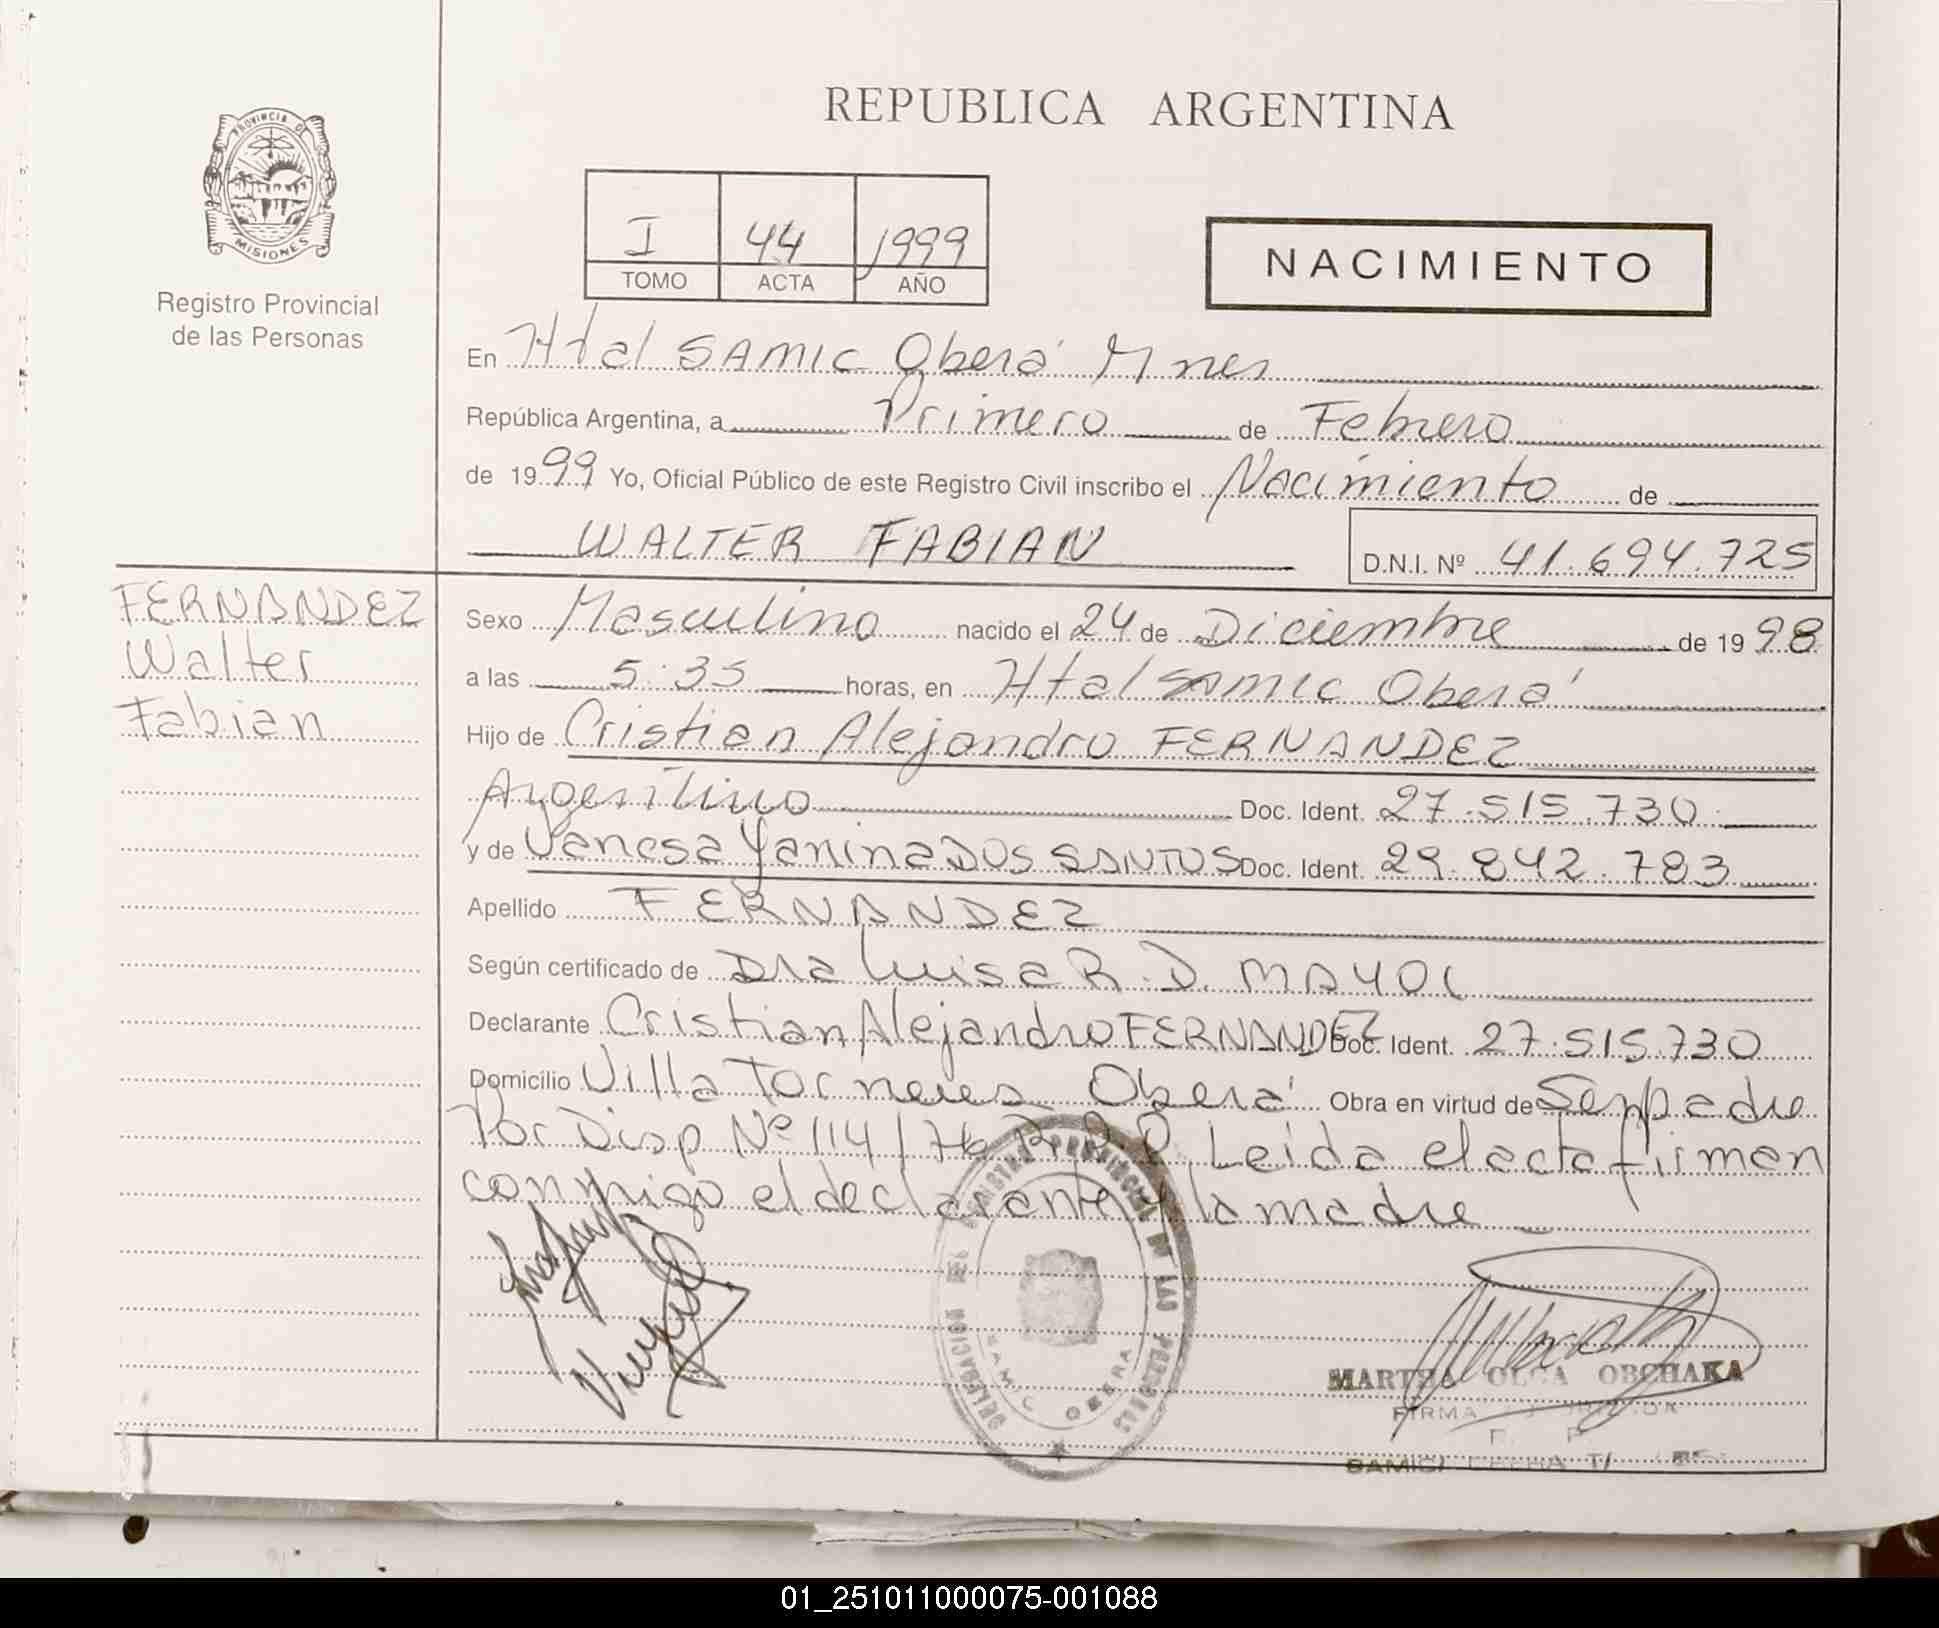 REPUBLICA ARGENTINA
PROVINCIA DE
MISIONES
Registro Provincial
de las Personas
I 44 1999
TOMO ACTA AÑO
NACIMIENTO
En Htal SAMIC Oberá Mnes
República Argentina, a Primero de Febrero
de 1999 Yo, Oficial Público de este Registro Civil inscribo el Nacimiento de
WALTER FABIAN D.N.I. Nº 41.694.725
FERNANDEZ
Walter
Fabian
Sexo Masculino nacido el 24 de Diciembre de 1998
a las 5:35 horas, en Htal SAMIC Oberá
Hijo de Cristian Alejandro FERNANDEZ
Argentino Doc. Ident. 27.515.730
y de Vanesa Yanina DOS SANTOS Doc. Ident. 29.842.783
Apellido FERNANDEZ
Según certificado de Dra Luisa R. D. MAYOL
Declarante Cristian Alejandro FERNANDEZ Doc. Ident. 27.515.730
Domicilio Villa Torneus Oberá Obra en virtud de Ser padre
Por Disp Nº 114/76 R.P.P. Leida el acta firman
conmigo el declarante y la madre
DELEGACION DEL REGISTRO PROVINCIAL DE LAS PERSONAS
SAMIC OBERA
MARTHA OLGA OBCHAKA
FIRMA
SAMIC
01_251011000075-001088